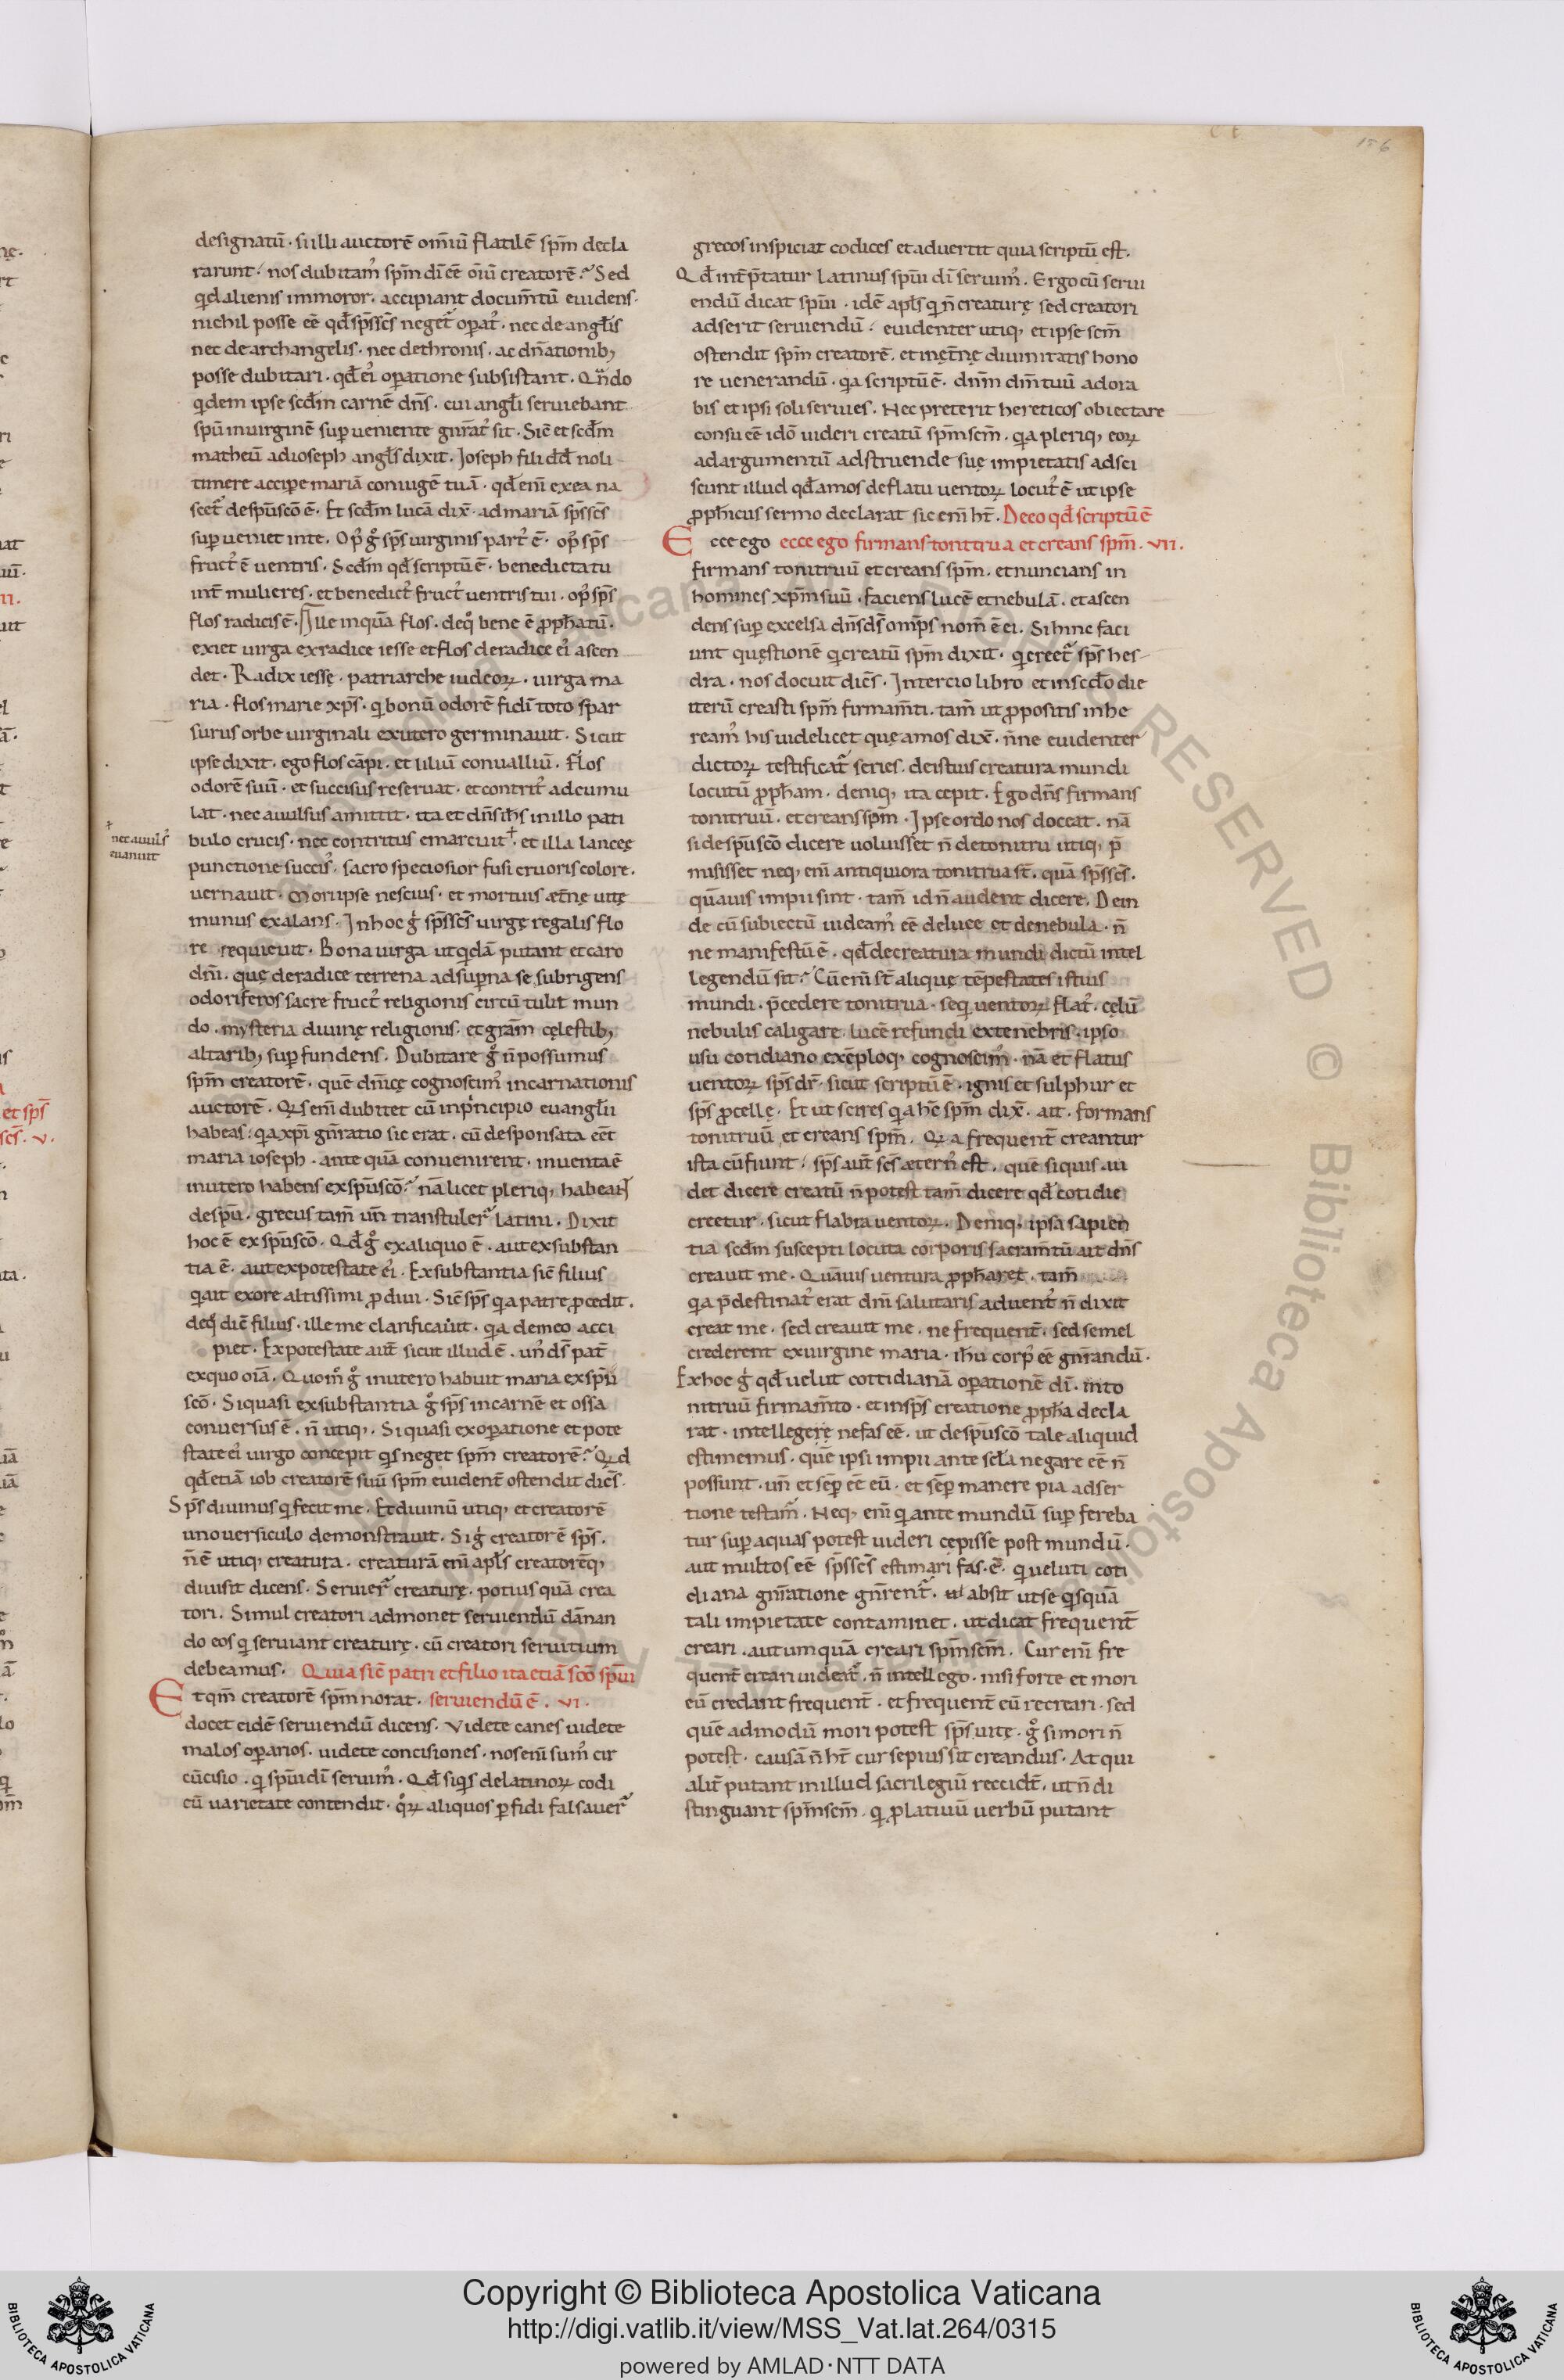 156
designatū · si illi auctorē om̄iū flatilē sp̄m decla
rarunt · nos dubitam᷒ sp̄m dī eē oīū creatorē · Sed
qd alienis immoror · accipiant docum̄tū euidens ·
nichil posse eē qd̄ sp̄s sc̄s neget᷒ opat᷒ · nec de angl̄is
nec de archangelis · nec de thronis · ac dn̄ationib;
posse dubitari · qd̄ ei᷒ opatione subsistant · Qn̄do
qdem ipse scd̄m carnē dn̄s · cui angl̄i seruiebant
spū in uirginē sup ueniente gn̄rat᷒ sit · Sic̄ et scd̄m
matheū ad ioseph angl̄s dixit · Ioseph fili dd̄ noli
timere accipe mariā coniugē tuā · qd̄ eni᷒ ex ea na
scet᷒ de spū scō ē · Et scd̄m lucā dix̄ · ad mariā sp̄s sc̄s
sup ueniet in te · Op᷒ g͛ sp̄s uirginis part᷒ ē · op᷒ sp̄s
fruct᷒ ē uentris · Scd̄m qd̄ scriptū ē · benedicta tu
int̄ mulieres · et benedict᷒ fruct᷒ uentris tui · op᷒ sp̄s
flos radicis ē · Ille inquā flos · de q͛ bene ē pph̄atū ·
exiet uirga ex radice iesse et flos de radice ei᷒ ascen
det · Radix iessę · patriarche iudeoꝝ · uirga ma
ria · flos marie xp̄s · q bonū odorē fidī toto spar
surus orbe uirginali ex utero germinauit · Sicut
ipse dixit · ego flos cāpi · et liliū conualliū · Flos
odorē suū · et succisus reseruat · et contrit᷒ adcumu
lat · nec auulsus amittit · ita et dn̄s ih̄s in illo pati
bulo crucis · nec contritus emarcuit · et illa lanceę
nec auuls᷒
euanuit
punctione succis᷒ · sacro speciosior fusi cruoris colore ·
uernauit · Mori ipse nescius · et mortuis æt̄nę uitę
munus exalans · In hoc g͛ sp̄s sc̄s uirgę regalis flo
re requieuit · Bona uirga ut qdā putant et caro
dn̄i · quę de radice terrena ad supna se subrigens
odoriferos sacre fruct᷒ religionis circū tulit mun
do · mysteria diuinę religionis · et grām cęlestib;
altarib; sup fundens · Dubitare g͛ n̄ possumus
sp̄m creatorē · quē dn̄icę cognoscim᷒ incarnationis
auctorē · Qs eni᷒ dubitet cū in pncipio euangl̄ii
habeas · qa xp̄i gn̄ratio sic erat · cū desponsata eēt
maria ioseph · ante quā conuenirent · inuenta ē
in utero habens ex spū scō · nā licet pleriq; habeant
de spū · grecus tam̄ un̄ transtuler᷒ latini · Dixit
hoc ē ex spū scō · Qd̄ g͛ ex aliquo ē · aut ex substan
tia ē · aut ex potestate ei᷒ · Ex substantia sic̄ filius
q ait ex ore altissimi pdiui · Sic̄ sp̄s q a patre pcedit ·
de q͛ dic̄ filius · ille me clarificauit · qa de meo acci
piet · Ex potestate aut̄ sicut illud ē · un᷒ ds̄ pat̄
ex quo oīa · Quom͛ g͛ in utero habuit maria ex spū
scō · Si quasi ex substantia g͛ sp̄s in carnē et ossa
conuersus ē · n̄ utiq; · Si quasi ex opatione et pote
state ei᷒ uirgo concepit qs neget sp̄m creatorē · Qd
qd̄ etiā iob creatorē suū sp̄m euident̄ ostendit dic̄s ·
Sp̄s diuinus q fecit me · Et diuinū utiq; et creatorē
uno uersiculo demonstrauit · Si g͛ creatorē sp̄s ·
n̄ ē utiq; creatura · creaturā eni᷒ apl̄s creatorēq;
diuisit dicens · Seruier᷒ creaturę · potius quā crea
tori · Simul creatori admonet seruiendū dānan
do eos q seruiant creaturę · cū creatori seruitium
debeamus · Quia sic̄ patri et filio ita etiā scō spūi
Et qm̄ creatorē sp̄m norat · seruiendū ē · VI ·
docet eidē seruiendū dicens · Videte canes uidete
malos oparios · uidete concisiones · nos eni᷒ sum᷒ cir
cūcisio · q spūi dī seruim᷒ · Qd̄ si qs de latinoꝝ codi
cū uarietate contendit · q͛ꝝ aliquos pfidi falsauer᷒
grecos inspiciat codices et aduertit quia scriptū est ·
Qd̄ int̄p̄tatur latinus spūi dī seruim᷒ · Ergo cū serui
endū dicat spūi · idē apl̄s q n̄ creaturę sed creatori
adserit seruiendū · euidenter utiq; et ipse scm̄
ostendit spīm creatorē · et in ęt̄nę diuinitatis hono
re uenerandū · qa scriptū ē · dn̄m dm̄ tuū adora
bis et ipsi soli seruies · Nec preterit hereticos obiectare
consu eē idō uideri creatū sp̄m scm̄ · qa pleriq; eoꝝ
ad argumentū adstruende suę impietatis adsci
scunt illud qd̄ amos de flatu uentoꝝ locut᷒ ē ut ipse
pph̄icus sermo declarat sic eni᷒ ht̄ · De eo qd̄ scriptū ē
Ecce ego ecce ego firmans tonitrua et creans sp̄m · VII ·
firmans tonitruū et creans sp̄m · et nuncians in
homines xp̄m suū · faciens lucē et nebulā · et ascen
dens sup excelsa dn̄s ds̄ omp̄s nom̄ ē ei · Si hinc faci
unt quęstionē q creatū sp̄m dixit · q creet᷒ sp̄s hes-
dra · nos docuit dic̄s · In tercio libro et in scdō die
iterū creasti sp̄m firmam̄ti · tam̄ ut ppositis inhe
ream᷒ his uidelicet quę amos dix̄ · n̄ne euidenter
dictoꝝ testificat᷒ series · de istius creatura mundi
locutū pph̄am · deniq; ita cepit · Ego dn̄s firmans
tonitruū · et creans sp̄m · Ipse ordo nos doceat · nā
si de spū scō dicere uoluisset n̄ de tonitru utiq; p̄
misisset neq; eni᷒ antiquiora tonitrua st̄ · quā sp̄s sc̄s ·
quāuis impii sint · tam̄ id n̄ audent dicere · Dein
de cū subiectū uideam᷒ eē de luce et de nebula · n̄
ne manifestū ē · qd̄ de creatura mundi dictū intel
legendū sit · Cū eni᷒ st̄ alique tēpestates istius
mundi · p̄cedere tonitrua · seq uentoꝝ flat᷒ · cęlū
nebulis caligare · lucē refundi ex tenebris · ipso
usu cotidiano exēploq; cognoscim᷒ · nā et flatus
uentoꝝ sp̄s dr̄ · sicut scriptū ē · ignis et sulphur et
sp̄s pcellę · Et ut scires qa hc̄ sp̄m dix̄ · ait · formans
tonitruū et creans sp̄m · Qa frequent̄ creantur
ista cū fiunt · sp̄s aut̄ sc̄s ætern᷒ est · quē si quis au
det dicere creatū n̄ potest tam̄ dicere qd̄ cotidie
creetur · sicut flabra uentoꝝ · Deniq; ipsa sapien
tia scd̄m suscepti locuta corporis sacram̄tū ait dn̄s
creauit me · Quāuis uentura pph̄aret · tam̄
qa p̄destinat᷒ erat dn̄i salutaris aduent᷒ n̄ dixit
creat me · sed creauit me · ne frequent̄ · sed semel
crederent ex uirgine maria · ih̄u corp᷒ eē gn̄randū ·
Ex hoc g͛ qd̄ uelut cottidianā opationē dī · in to
nitruū firmam̄to · et in sp̄s creatione pph̄a decla
rat · intellegere nefas eē · ut de spū scō tale aliquid
estimemus · quē ipsi impii ante scl̄a negare eē n̄
possunt · un̄ et sēp eē eū · et sēp manere pia adser
tione testam᷒ · Neq; eni᷒ q ante mundū sup fereba
tur sup aquas potest uideri cepisse post mundū ·
aut multos eē sp̄s sc̄s estimari fas · ē · q ueluti coti
diana gn̄ratione gn̄rent᷒ · absit ut se qsquā
tali impietate contaminet · ut dicat frequent̄
creari · aut umquā creari sp̄m scm̄ · Cur eni᷒ fre
quent̄ creari uideat᷒ · n̄ intellego · nisi forte et mori
eū credant frequent̄ · et frequent̄ eū recreari · sed
quē admodū mori potest sp̄s uitę · g͛ si mori n̄
potest · causā n̄ ht̄ cur sepius sit creandus · At qui
alit̄ putant in illud sacrilegiū reccidt̄ · ut n̄ di
stinguant sp̄m scm̄ · q platiuū uerbū putant
Copyright © Biblioteca Apostolica Vaticana
http://digi.vatlib.it/view/MSS_Vat.lat.264/0315
powered by AMLAD·NTT DATA